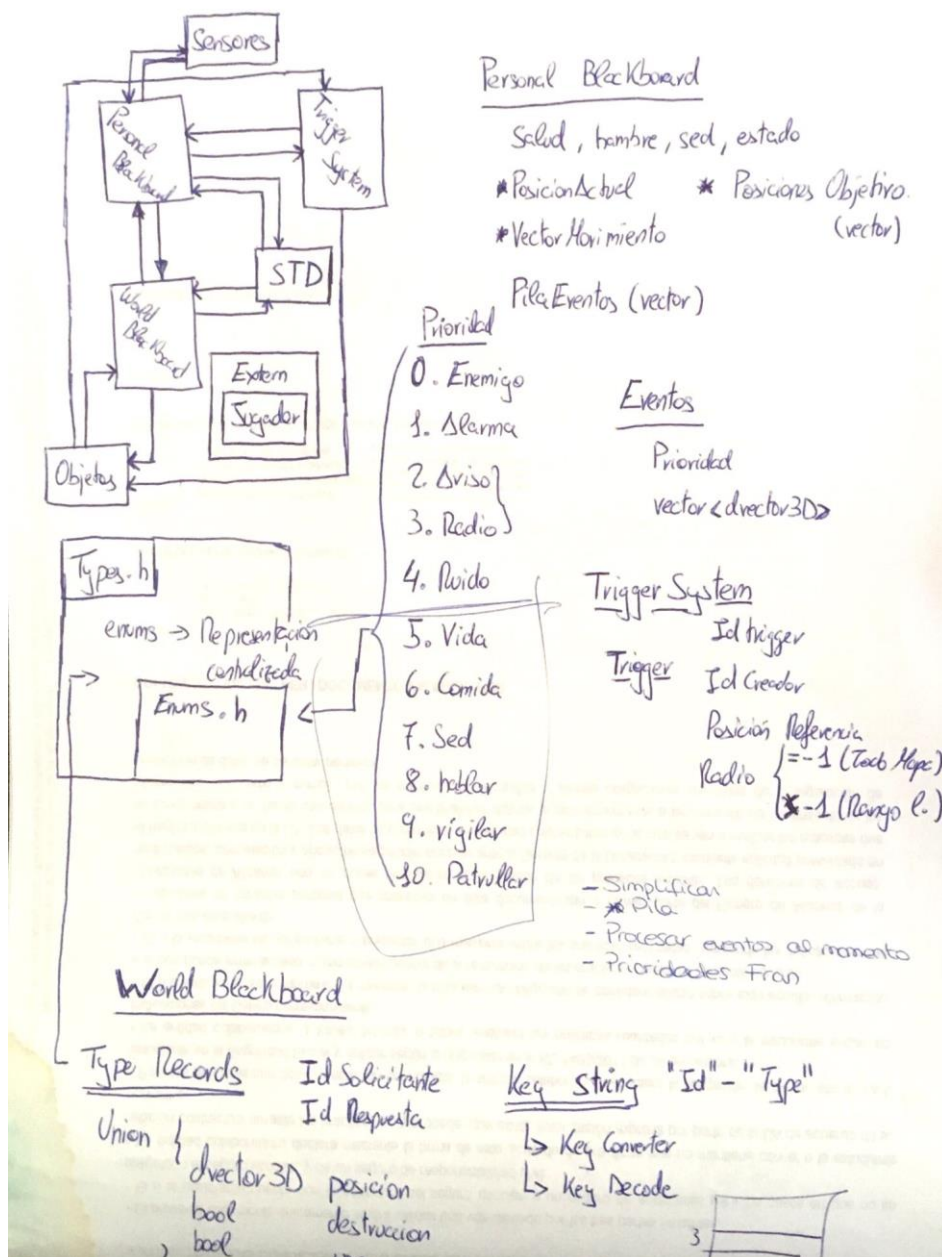 Sensores
Personal
Blackboard
Trigger
System
STD
World
Blackboard
Extern
Jugador
Objetos
Personal Blackboard
Salud, hambre, sed, estado
*PosicionActual * Posiciones Objetivo.
(vector)
*VectorMovimiento
PilaEventos (vector)
Prioridad
0. Enemigo
1. Alarma
2. Aviso
3. Radio
4. Ruido
5. Vida
6. Comida
7. Sed
8. hablar
9. vigilar
10. Patrullar
Eventos
Prioridad
vector<dvector3D>
Types.h
enums → Representación
centralizada
Enums.h
Trigger System
Id trigger
Trigger Id Creador
Posición Referencia
Radio =-1 (Todo Mapa)
-1 (Rango l.)
- Simplificar
- Pila
- Procesar eventos al momento
- Prioridades Fran
World Blackboard
Type Records Id Solicitante
Id Respuesta
Union {
dvector3D posicion
bool destruccion
bool
Key String "Id" - "Type"
↳ Key Converter
↳ Key Decode
3